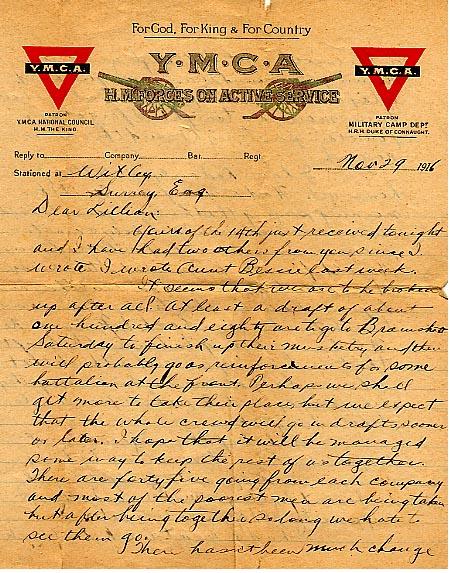 For God, For King & For Country
Y·M·C·A
H.M. FORCES ON ACTIVE SERVICE
Y.M.C.A.
PATRON
Y.M.C.A NATIONAL COUNCIL
H.M. THE KING.
Y.M.C.A.
PATRON
MILITARY CAMP DEPT
H.R.H. DUKE OF CONNAUGHT.
Reply to Company Bat. Regt. Nov 29 1916
Stationed at Witley
Surrey Eng
Dear Lillian:
Yours of the 14th just received tonight
and I have had two others from you since I
wrote. I wrote Aunt Bessie last week.
It seems that we are to be broken
up after all. At least a draft of about
one hundred and eighty are to go to Bramshott
Saturday to finish up their musketry and then
will probably go as reinforcements for some
battalion at the front. Perhaps we shall
get more to take their place, but we expect
that the whole crew will go in drafts sooner
or later. I hope that it will be managed
some way to keep the rest of us together.
There are forty five going from each company
and most of the poorest men are being taken
but after being together so long we hate to
see them go.
There hasn't been much change